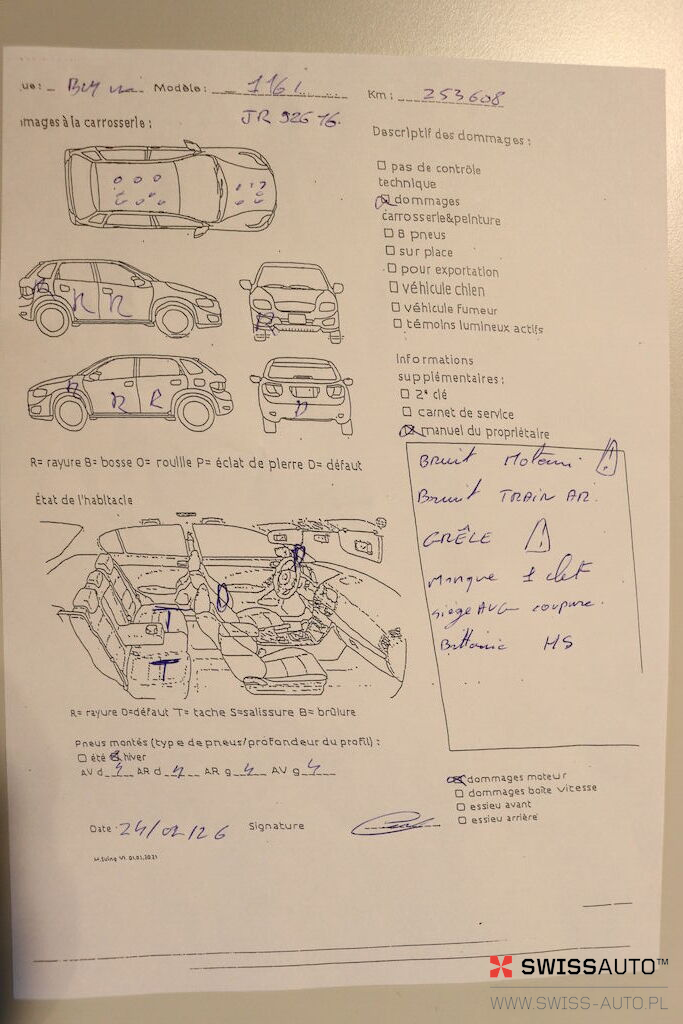 ue: BMW Modèle: 116i Km: 253608
JR 926 16.
mages à la carrosserie:
Descriptif des dommages:
☐ pas de contrôle
technique
☒ dommages
carrosserie&peinture
☐ 8 pneus
☐ sur place
☐ pour exportation
☐ véhicule chien
☐ véhicule fumeur
☐ témoins lumineux actifs
R R R
R
R R R
D
Informations
supplémentaires:
☐ 2ᵉ clé
☐ carnet de service
☒ manuel du propriétaire
R= rayure B= bosse O= rouille P= éclat de pierre D= défaut
Bruit Moteur !
Bruit TRAIN AR.
GRÊLE !
Manque 1 clef
siège AVG coupure.
Batterie HS
État de l'habitacle
T
T
R= rayure D=défaut T= tache S=salissure B= brûlure
Pneus montés (type de pneus/profondeur du profil):
☐ été ☒ hiver
AV d 4 AR d 4 AR g 4 AV g 4
☒ dommages moteur
☐ dommages boîte vitesse
☐ essieu avant
☐ essieu arrière
Date 24/02/26 Signature
V1 01.01.2021
SWISSAUTO™
WWW.SWISS-AUTO.PL